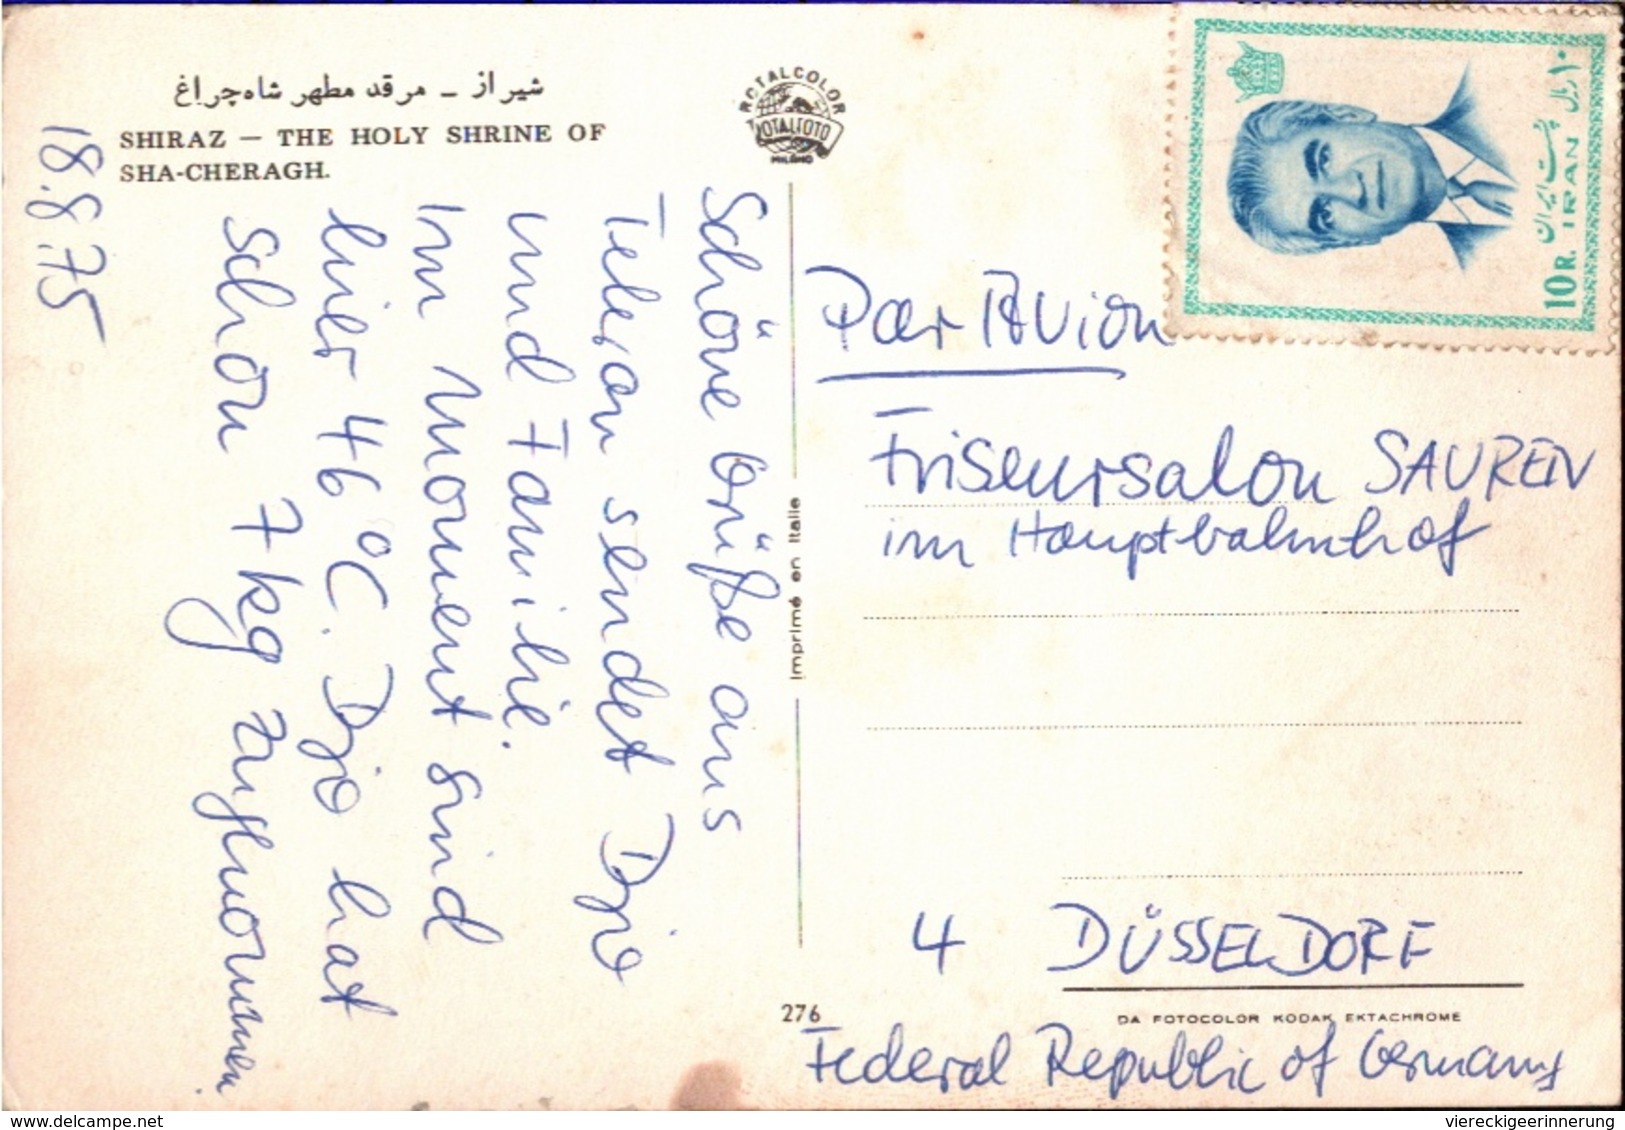 شیراز ــ مرقد مطهر شاه‌چراغ
SHIRAZ — THE HOLY SHRINE OF
SHA-CHERAGH.
18.8.75
Schöne Grüße aus
Teheran sendet Djo
und Familie.
Im Moment sind
hier 46°C. Djo hat
schon 7 kg zugenommen.
ROTALCOLOR
ROTALFOTO
MILANO
Imprimé en Italie
276
۱۰ ریال
پست ایران
10 R. IRAN
Par Avion
Friseursalon SAUREN
im Hauptbahnhof
4 DÜSSELDORF
DA FOTOCOLOR KODAK EKTACHROME
Federal Republic of Germany
delcampe.net
viereckigeerinnerung